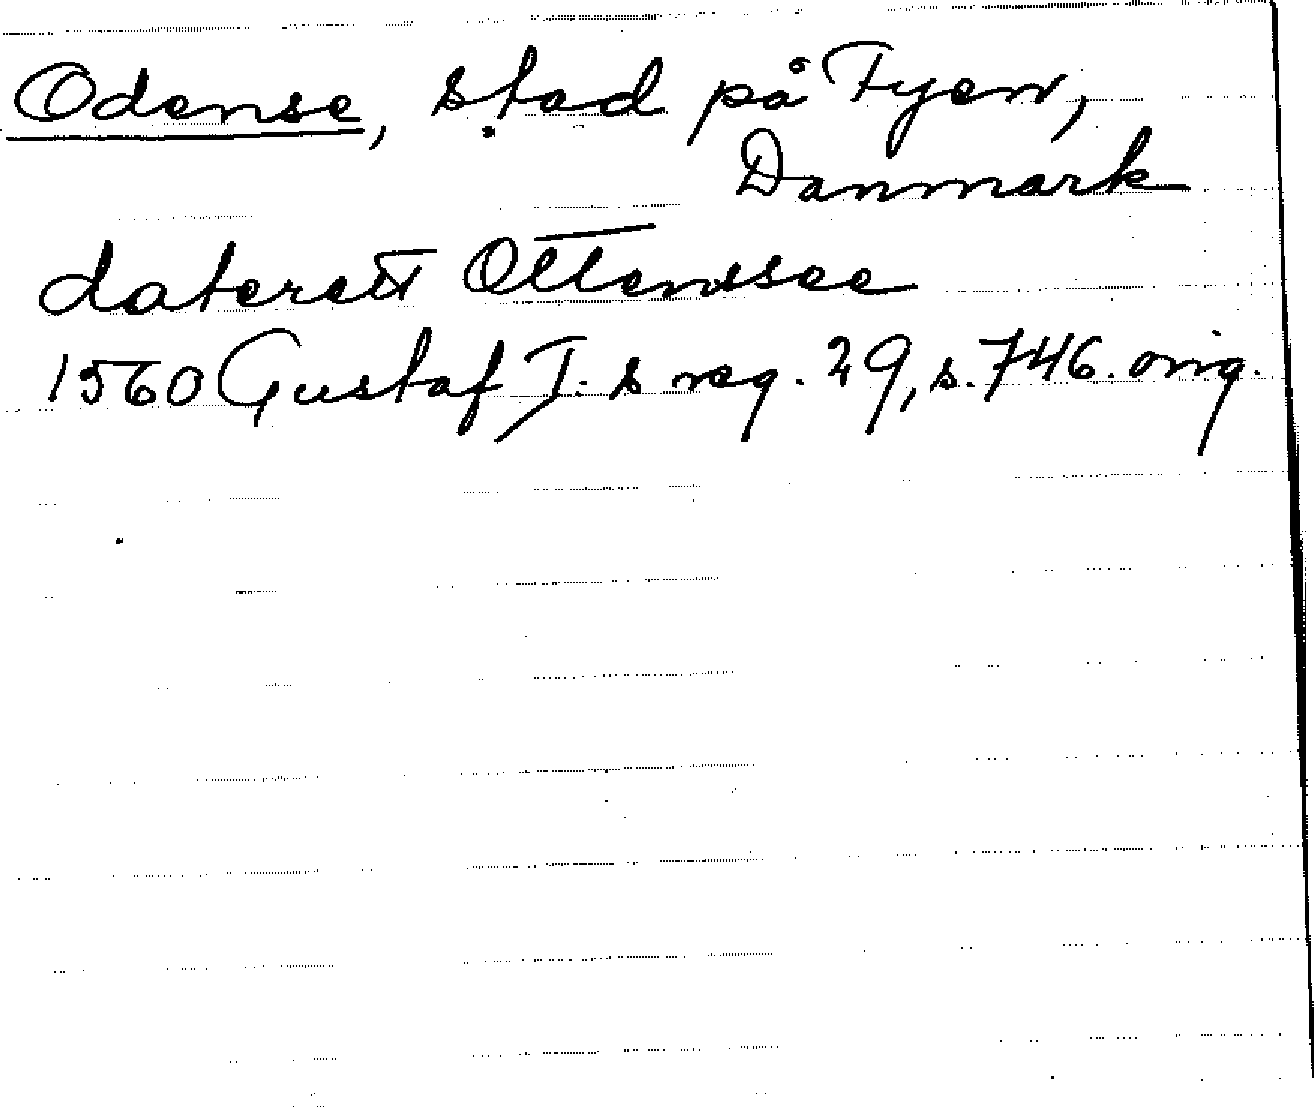 Odense, stad på Fyen,
Danmark
daterett Ottensee
1560 Gustaf I:s reg. 29, s. 746. orig.